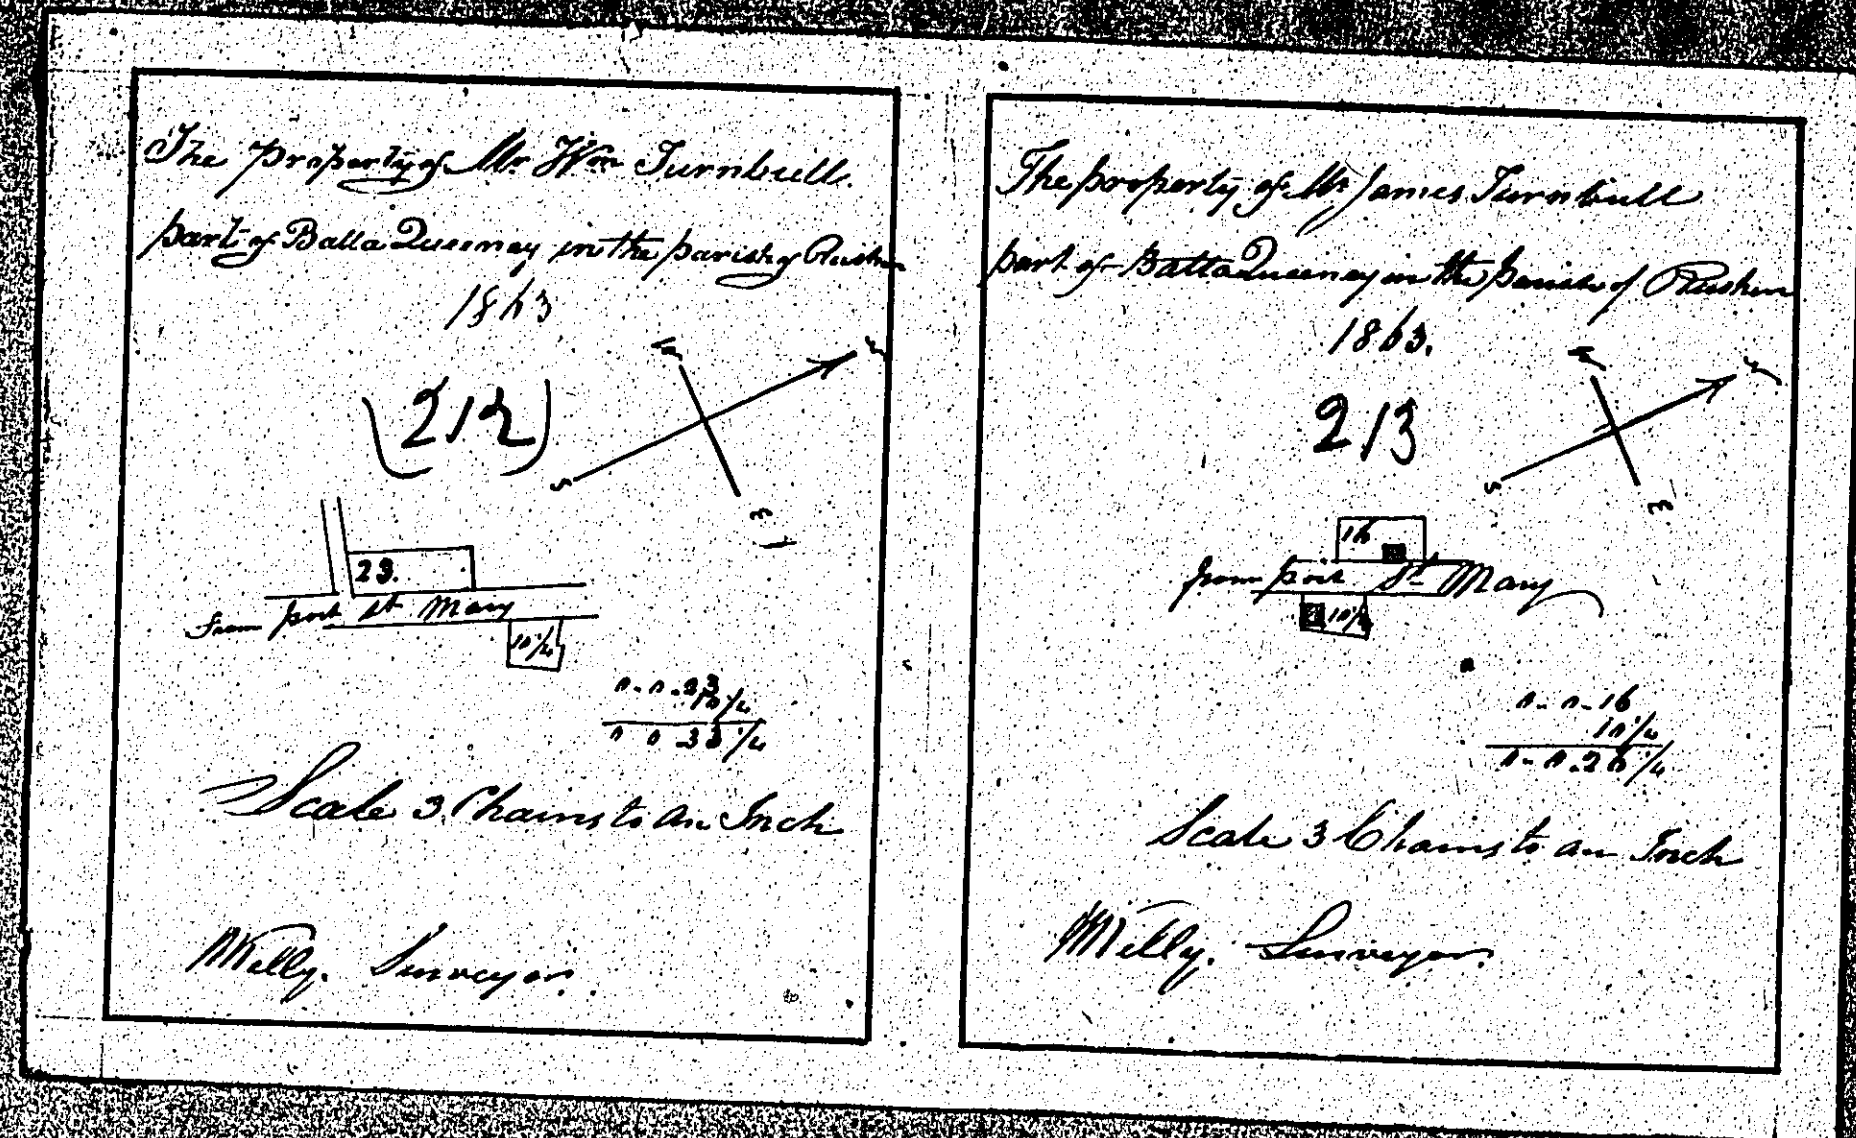 The property of Mr Wm Turnbull.
part of Balla Queeney in the parish of Rushen
1863
W
N
(212)
S
E
23.
From port St Mary
10 1/4
0-0-23
10 1/4
0 0 33 1/4
Scale 3 Chains to an Inch
Surveyor
The property of Mr James Turnbull
part of Balla Queeney in the parish of Rushen
1863.
W
N
213
S
E
16
from port St Mary
10 1/4
0-0-16
10 1/4
0-0-26 1/4
Scale 3 Chains to an Inch
Surveyor